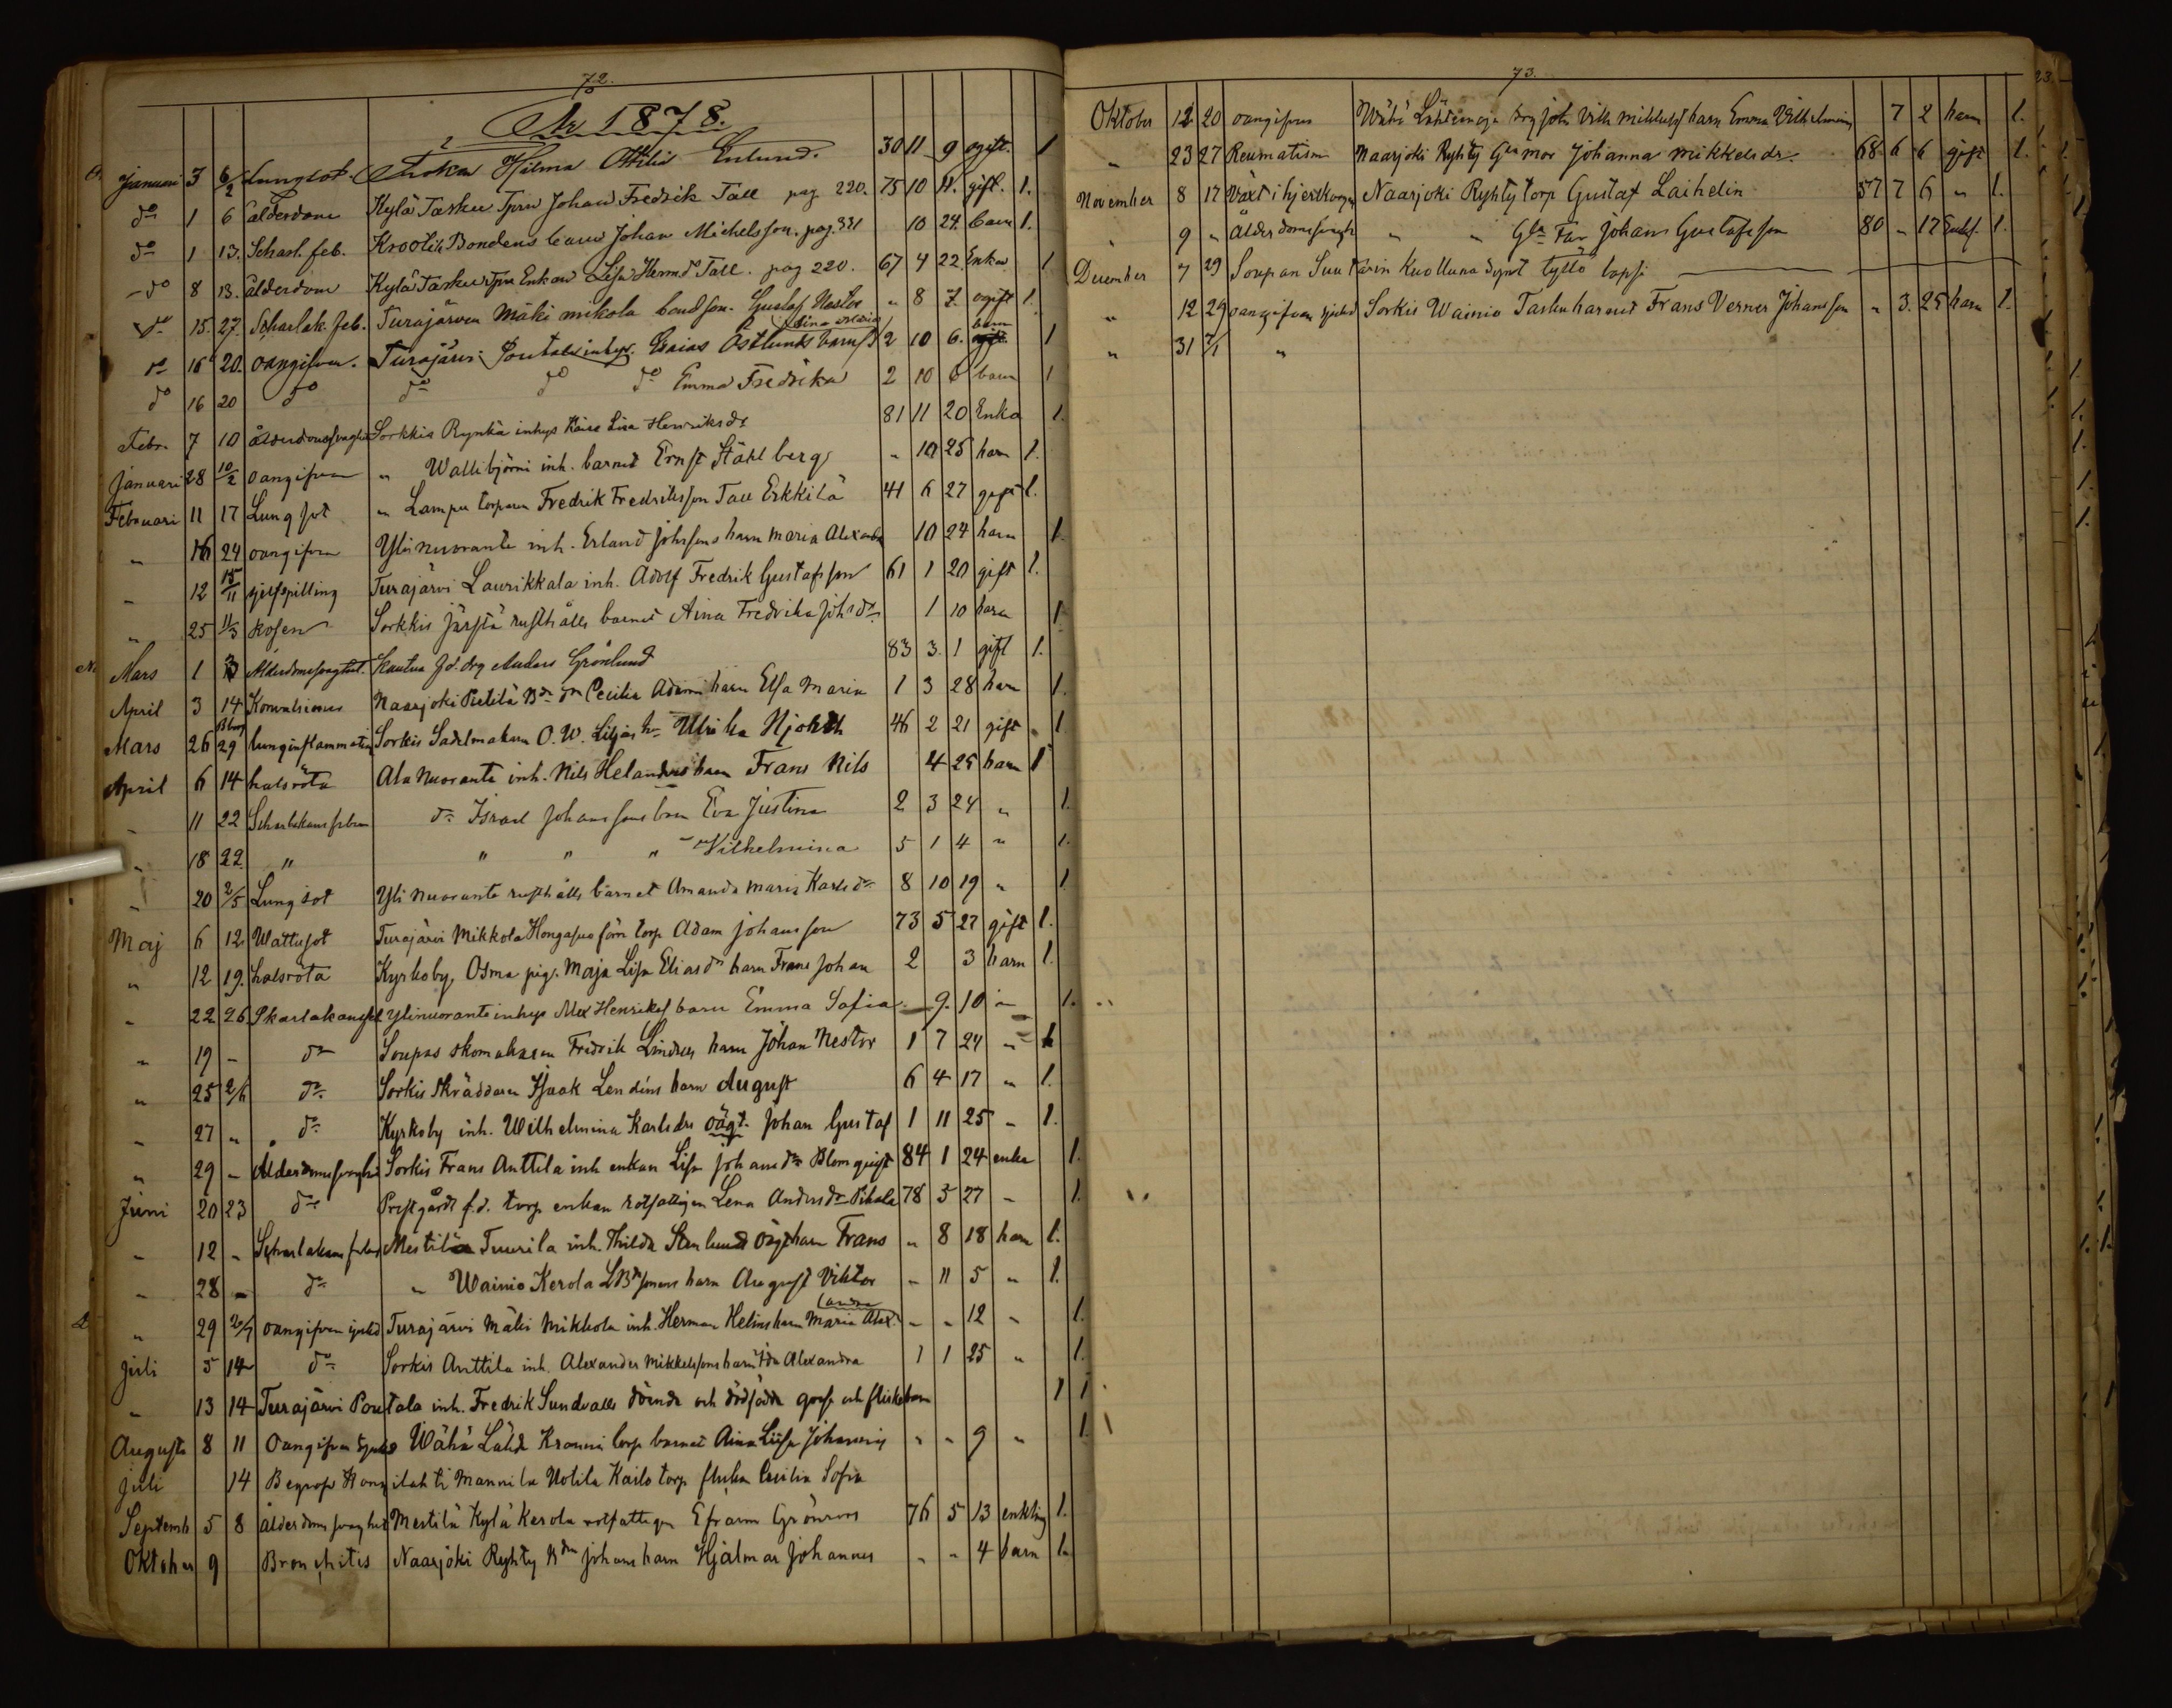 72.
År 1878.
Januari 3 6/2 Lungsot. Fröken Hilma Ottilia Enlund. 30 11 9 ogift. 1
do 1 6 ålderdom Kylä Taskeu Tpm Johan Fredrik Tall pag 220. 75 10 11. gift. 1.
do 1 13. Scharl. feb. Krootila Bondens barn Johan Michelsson. pag. 331 10 24. barn 1.
do 8 13. ålderdom Kylä Taskeu Enkan Lisa Hermd Tall. pag 220. 67 4 22. Enka 1
do 15. 27. Scharlak. feb. Turajärven Mäki mikola bond son. Gustaf Nestor " 8 7. ogift 1.
do 16 20. oangifven. Turajärvi Poutala inhys. Esaias Östlunds barn Lina Maria 2 10 6. barn 1
do 16 20 do do do do Emma Fredrika 2 10 6 barn 1
Febr. 7 10 ålderdomssvaghet Sorkkis Rynkä inhys Kaisa Lisa Henriksdr 81 11 20 Enka 1.
Januari 28 10/2 oangifven " Wallibjörni inh. barnet Ernst Ståhlberg " 10 25 barn 1.
Februari 11 17 Lungsot " Lampu torparen Fredrik Fredriksson Tall Erkkilä 41 6 27 gift 1.
" 16 24 oangifven Yli nuoranti inh. Erland Johssons barn Maria Alexandra 10 24 barn 1.
" 12 15/11 Turajärvi Laurikkala inh. Adolf Fredrik Gustafsson 61 1 20 gift 1.
" 25 11/3 kosen Sorkkis Järstä rusthålls barnet Aina Fredrika Johsdr 1 10 barn 1
Mars 1 3 Ålderdomssvaghet. Kauttua fd. drg Anders Grönlund 83 3. 1 gift 1.
April 3 14 Konvulsioner Naarjoki Pietilä Bdn dr Cecilia Adami barn Elsa Maria 1 3 28 barn 1.
Mars 26 29 lunginflammation Sorkis Sadelmakaren O. W. Liljas h Ulrika Hjorth 46 2 21 gift 1.
April 6 14 halsröta Ala Nuoranti inh. Nils Helanders barn Frans Nils 4 25 barn 1
" 11 22 Scharlakansfebern do Israel Johanssons barn Eva Justina 2 3 24 " 1.
" 18 22 " " " " Vilhelmina 5 1 4 " 1.
" 20 2/5 Lungsot Yli Nuoranti rusthålls barnet Amanda Maria Karlsdr 8 10 19 " 1
Maj 6 12 Wattusot Turajärvi Mikkola Hongasuo förn torp Adam Johansson 73 5 27 gift 1.
" 12 19. halsröta Kyrkoby, Osma pig. Maja Lisa Eliasdr barn Frans Johan 2 3 barn 1.
" 22 26 Skarlakansfeb Ylinuoranti inhys Alex Henrikss barn Emma Sofia — 9. 10 " 1.
" 19 - do Soupas skomakaren Fredrik Lindrus barn Johan Nestor 1 7 24 " 1
" 25 2/6 do Sorkis skräddaren Isaak Lendéns barn August 6 4 17 " 1.
" 27 " do Kyrkoby inh. Wilhelmina Karlsdrs oägt. Johan Gustaf 1 11 25 " 1.
" 29 - Ålderdomssvaghet Sorkis Frans Anttila inh enkan Lisa Johansdr Blomqvist 84 1 24 enka 1.
Juni 20 23 do Prestgårds f.d. torp enkan rotfattigen Lena Andersdr Pihala 78 5 27 - 1.
" 12 - Scharlakansfeber Mestilä Tuurila inh. Hilda Stenlunds oägt barn Frans " 8 18 barn 1.
" 28 - do " Wainio Kerola LBdsonens barn August Viktor - 11 5 " 1.
" 29 2/7 oangifven sjukd Turajärvi Mäki Mikkola inh. Herman Helins barn Maria Alexandra - " 12 " 1.
Juli 5 14 do Sorkis Anttila inh. Alexander Mikkelssons barn Ida Alexandra 1 1 25 " 1.
" 13 14 Turajärvi Poutala inh. Fredrik Sundvalls döende och dödfödda goss och flickebarn 1 1
Augusti 8 11 Oangifven sjukd Wähä Lähd Kronni torp barnet Aina Lisa Johanna " " 9 " 1.
Juli 14 Begrofs Honkilahti Mannila Uotila Kailo torp flickan Cecilia Sofia
Septemb 5 8 ålderdomssvaghet Mestilä Kylä Kerola rotfattigen Efraim Grönroos 76 5 13 enkling 1.
Oktober 9 Bronchitis Naarjoki Ryhty Bdn Johans barn Hjalmar Johannes " " 4 barn 1.
73.
Oktober 12 20 oangifven Wähä Lähteenoja drg Joh. Vilh. Mikkelss barn Emma Vilhelmina 7 2 barn 1.
" 23 27 Reumatism Naarjoki Ryhty Gla mor Johanna Mikkelsdr. 68 6 6 gift 1.
November 8 17 Växt i hjertkroppen Naarjoki Ryhty torp Gustaf Laihelin 57 7 6 " 1.
" 9 " Ålderdomssvagh " " Gla Far Johan Gustafsson 80 " 17 Enkl. 1.
December 7 29 Soupan Suutarin Kuolluna synt tyttö lapsi
" 12 29 oangifven sjukd Sorkis Wainio Tasku barnet Frans Verner Johansson " 3. 25 barn 1.
" 31 7/1 "